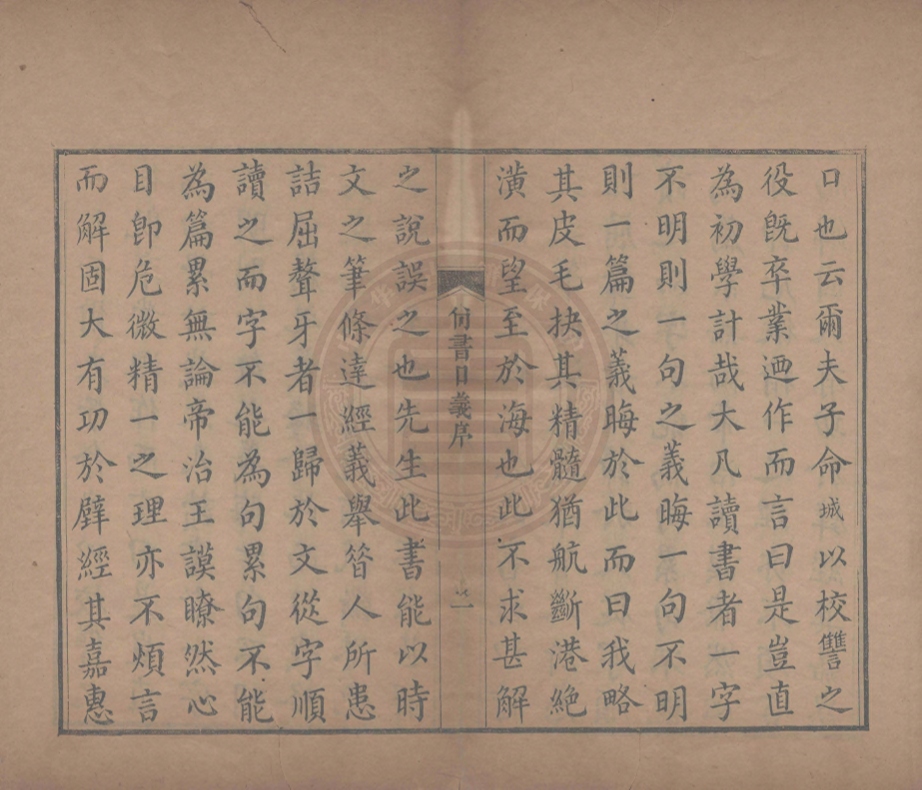 口也云爾夫子命城以校讐之
役旣卒業迺作而言曰是豈直
為初學計哉大凡讀書者一字
不明則一句之義晦一句不明
則一篇之義晦於此而曰我略
其皮毛抉其精髓猶航斷港絶
潢而望至於海也此不求甚解
尙書口義序
之說誤之也先生此書能以時
文之筆條達經義舉昝人所患
詰屈聱牙者一歸於文從字順
讀之而字不能為句累句不能
為篇累無論帝治王謨瞭然心
目卽危微精一之理亦不煩言
而解固大有功於壁經其嘉惠